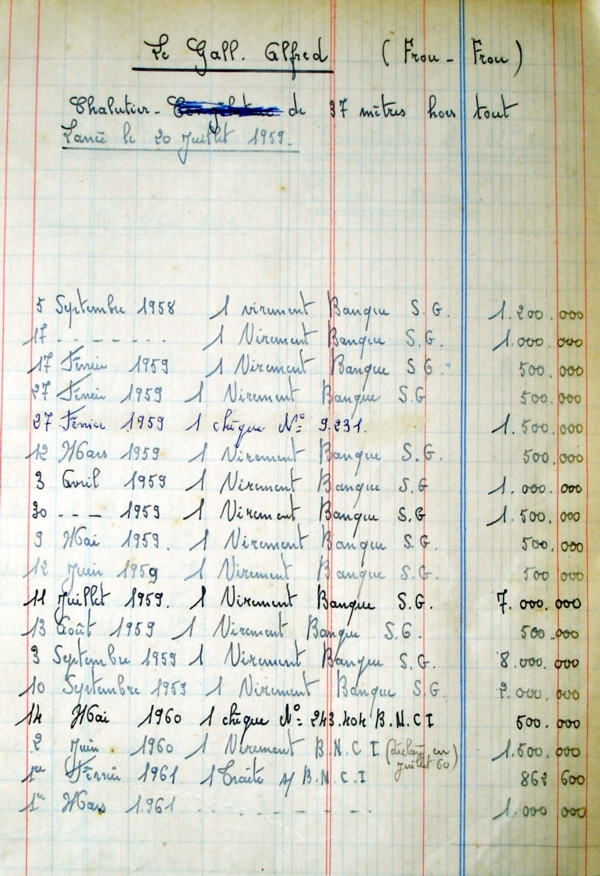 Le Gall. Alfred ( Frou - Frou )
Chalutier - de 37 mètres hors tout
Lancé le 20 Juillet 1959.
5 Septembre 1958 1 virement Banque S.G. 1.200.000
17 - - - - - - - - 1 Virement Banque S.G. 1.000.000
17 Février 1959 1 Virement Banque S.G. 500.000
27 Février 1959 1 Virement Banque S.G 500.000
27 Février 1959 1 chèque N° 9.231. 1.500.000
12 Mars 1959 1 Virement Banque S.G. 500.000
3 Avril 1959 1 Virement Banque S.G 1.000.000
30 - - - 1959 1 Virement Banque S.G. 1.500.000
9 Mai 1959. 1 Virement Banque S.G. 500.000
12 Juin 1959 1 Virement Banque S.G. 500 000
11 Juillet 1959. 1 Virement Banque S.G. 7.000.000
13 Août 1959 1 Virement Banque S.G. 500.000
3 Septembre 1959 1 Virement Banque S.G. 8.000.000
10 Septembre 1959 1 Virement Banque S.G. 2.000.000
14 Mai 1960 1 chèque N° 243.404 B.N.C.I 500.000
2 Juin 1960 1 Virement B.N.C.I (déclaré en Juillet 60) 1.500.000
1er Février 1961 1 Traite s/ B.N.C.I 862 600
1er Mars 1961 - - - - - - - - 1.000 000